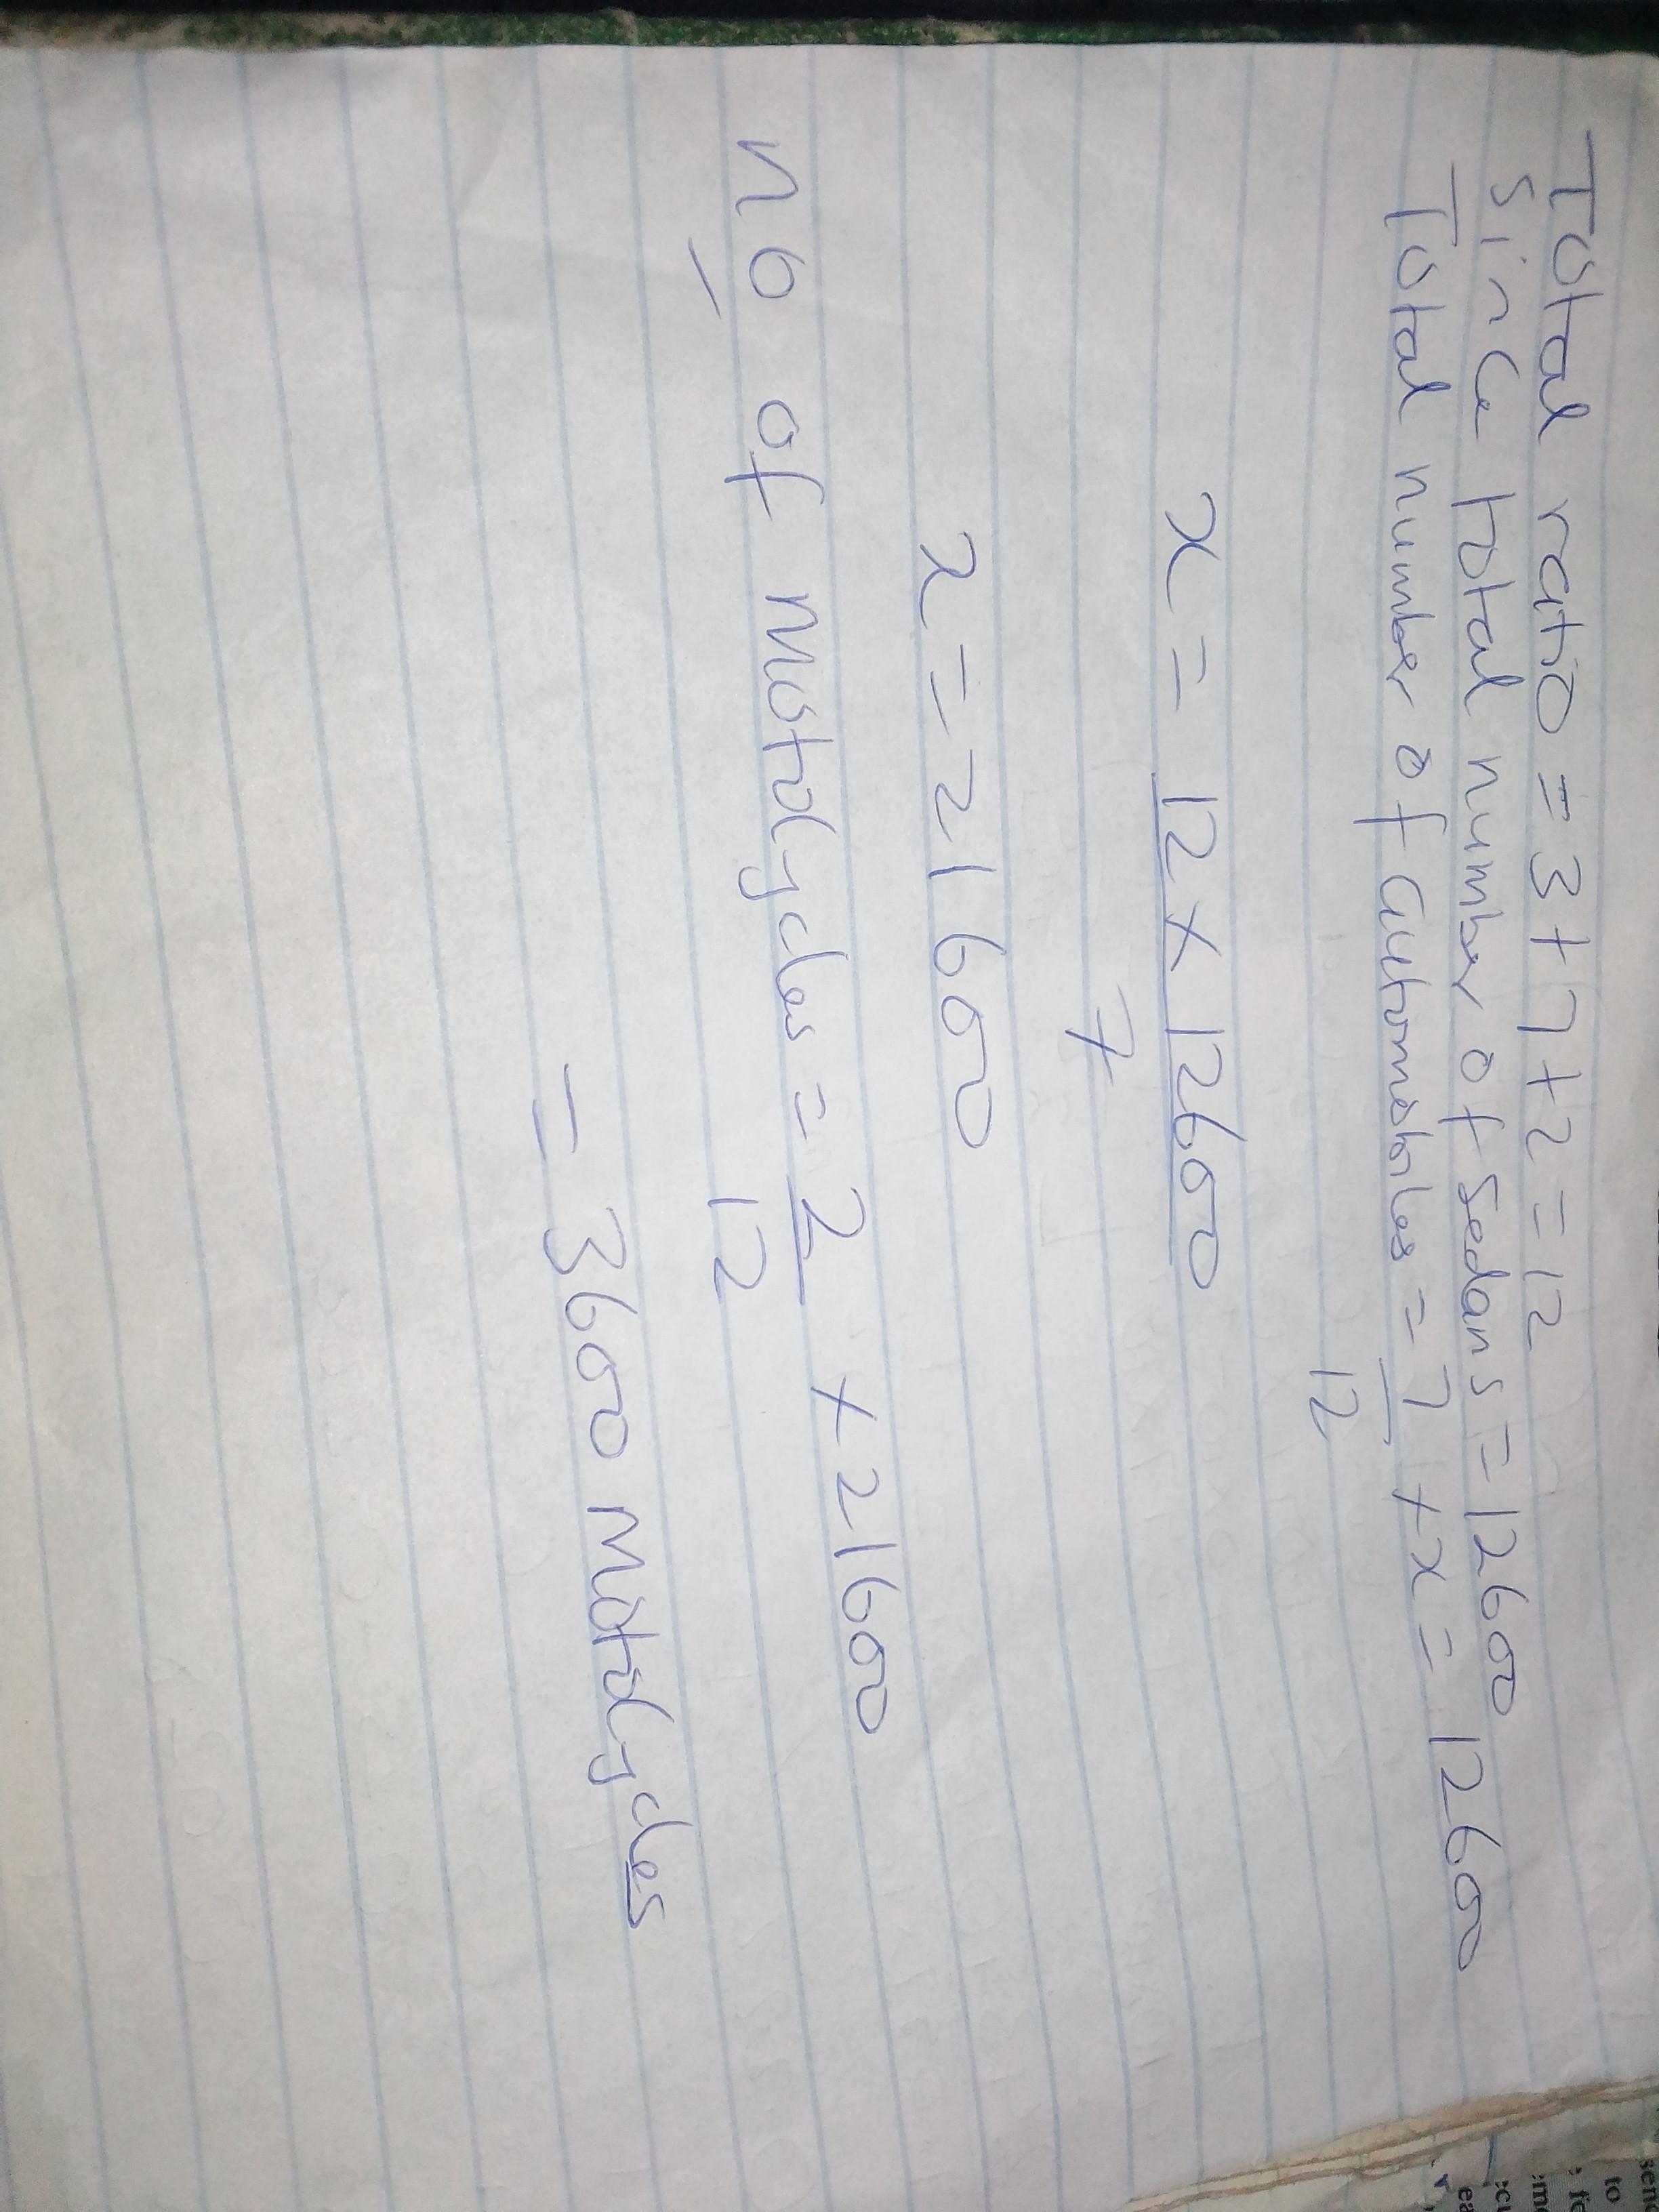 Total ratio = 3 + 7 + 2 = 12
Since total number of Sedans = 12600
Total number of automobiles = 7/12 × x = 12600
x = 12 × 12600 / 7
x = 21600
no of motorcycles = 2/12 × 21600
= 3600 motorcycles